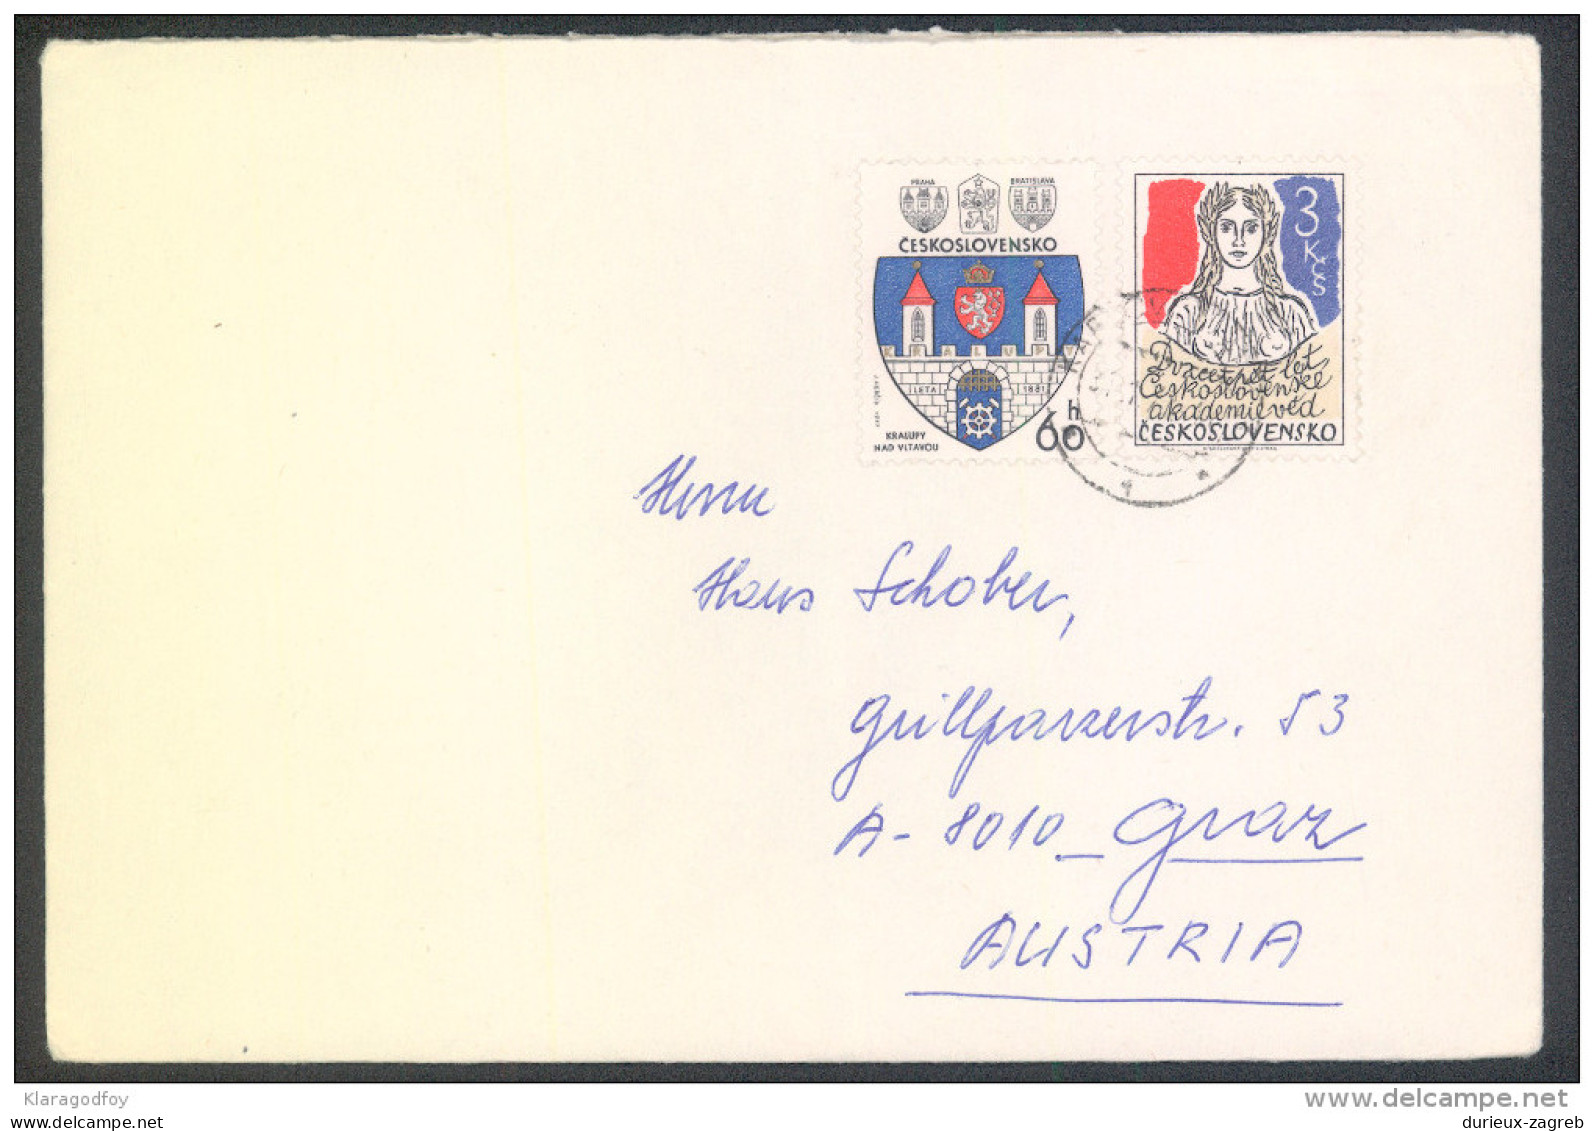 PRAHA
BRATISLAVA
ČESKOSLOVENSKO
KRALUPY
LETA 1881
60 h
KRALUPY
NAD VLTAVOU
3
Kčs
Dvacet pět let
Československé
akademie věd
ČESKOSLOVENSKO
Herrn
Hans Schober,
Grillparzerstr. 53
A-8010 Graz
AUSTRIA
Klaragodfoy
delcampe.net
durieux-zagreb